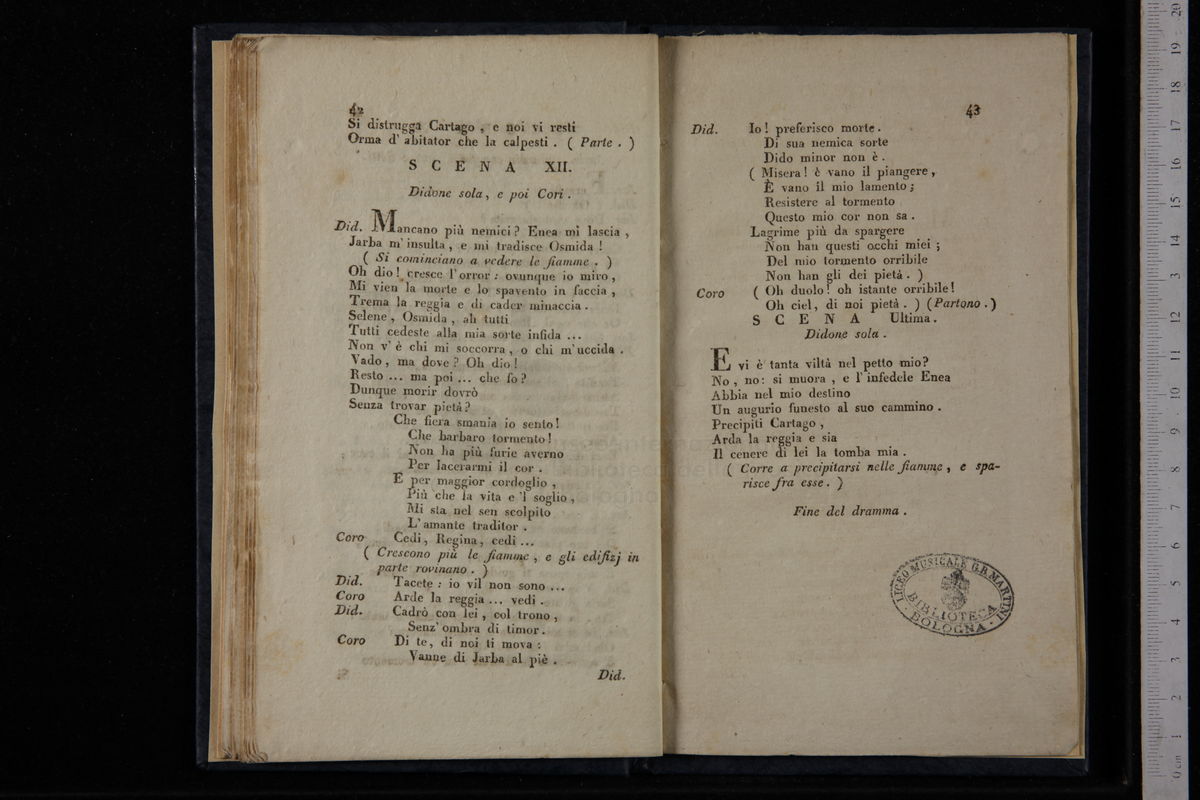 42
Si distrugga Cartago , e noi vi resti
Orma d' abitator che la calpesti . ( Parte . )
SCENA XII.
Didone sola , e poi Cori .
Did. Mancano più nemici ? Enea mi lascia ,
Jarba m' insulta , e mi tradisce Osmida !
( Si cominciano a vedere le fiamme . )
Oh dio ! cresce l' orror : ovunque io miro ,
Mi vien la morte e lo spavento in faccia ,
Trema la reggia e di cader minaccia .
Selene , Osmida , ah tutti
Tutti cedeste alla mia sorte infida ...
Non v' è chi mi soccorra , o chi m' uccida .
Vado , ma dove ? Oh dio !
Resto ... ma poi ... che fo ?
Dunque morir dovrò
Senza trovar pietà ?
Che fiera smania io sento !
Che barbaro tormento !
Non ha più furie averno
Per lacerarmi il cor .
E per maggior cordoglio ,
Più che la vita e 'l soglio ,
Mi sta nel sen scolpito
L' amante traditor .
Coro Cedi , Regina , cedi ...
( Crescono più le fiamme , e gli edifizj in
parte rovinano . )
Did. Tacete : io vil non sono ...
Coro Arde la reggia ... vedi .
Did. Cadrò con lei , col trono ,
Senz' ombra di timor .
Coro Di te , di noi ti mova :
Vanne di Jarba al piè .
Did.
43
Did. Io ! preferisco morte .
Di sua nemica sorte
Dido minor non è .
( Misera ! è vano il piangere ,
È vano il mio lamento ;
Resistere al tormento
Questo mio cor non sa .
Lagrime più da spargere
Non han questi occhi miei ;
Del mio tormento orribile
Non han gli dei pietà . )
Coro ( Oh duolo ! oh istante orribile !
Oh ciel , di noi pietà . ) ( Partono . )
SCENA Ultima .
Didone sola .
E vi è tanta viltà nel petto mio ?
No , no : si muora , e l' infedele Enea
Abbia nel mio destino
Un augurio funesto al suo cammino .
Precipiti Cartago ,
Arda la reggia e sia
Il cenere di lei la tomba mia .
( Corre a precipitarsi nelle fiamme , e spa-
risce fra esse . )
Fine del dramma .
LICEO MUSICALE G.B. MARTINI
BIBLIOTECA
BOLOGNA
0 cm 1 2 3 4 5 6 7 8 9 10 11 12 13 14 15 16 17 18 19 20